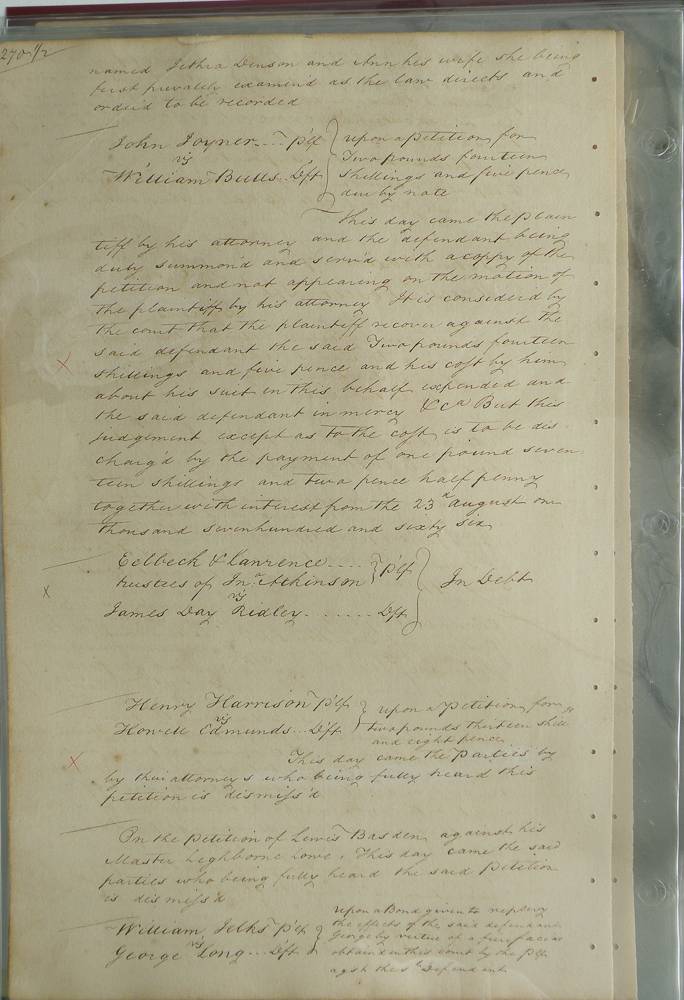 270 1/2
named Jethra Denson and Ann his wife she being
first privately examind as the law directs and
orderd to be recorded
John Joyner .... Pltf
vs
William Bulls .. Dft
upon a Petition for
Two pounds fourteen
shillings and five pence
due by note
This day came the Plain
tiff by his attorney and the defendant being
duly summond and servd with a coppy of the
petition and not appearing on the motion of
the plaintiff by his attorney It is considerd by
the court that the plaintiff recover against the
said defendant the said Two pounds fourteen
shillings and five pence and his cost by him
about his suit in this behalf expended and
the said defendant in mercy &ca But this
judgement except as to the cost is to be dis
charg'd by the payment of one pound seven
teen shillings and two pence half penny
together with interest from the 23d August one
thousand sevenhundred and sixty six
Eelbeck & Lawrence ....
trustees of Jno Atchinson
Pltf
vs
James Day Ridley ....... Dft
In Debt
Henry Harrison Pltf
vs
Howell Edmunds ... Dft
upon a Petition for
two pounds thirteen shill
and eight pence
This day came the Parties by
by their attorneys who being fully heard this
petition is dismiss'd
On the Petition of Lewis Basden against his
Master Leighborne Lowe. This day came the said
parties who being fully heard the said Petition
is dismiss'd
William Jelks Pltf
vs
George Long ... Dft
upon a Bond given to
the effects of the said defendant
George by virtue of a fierifacias
obtaind in this court by the Pltf
agst the sd Defendant